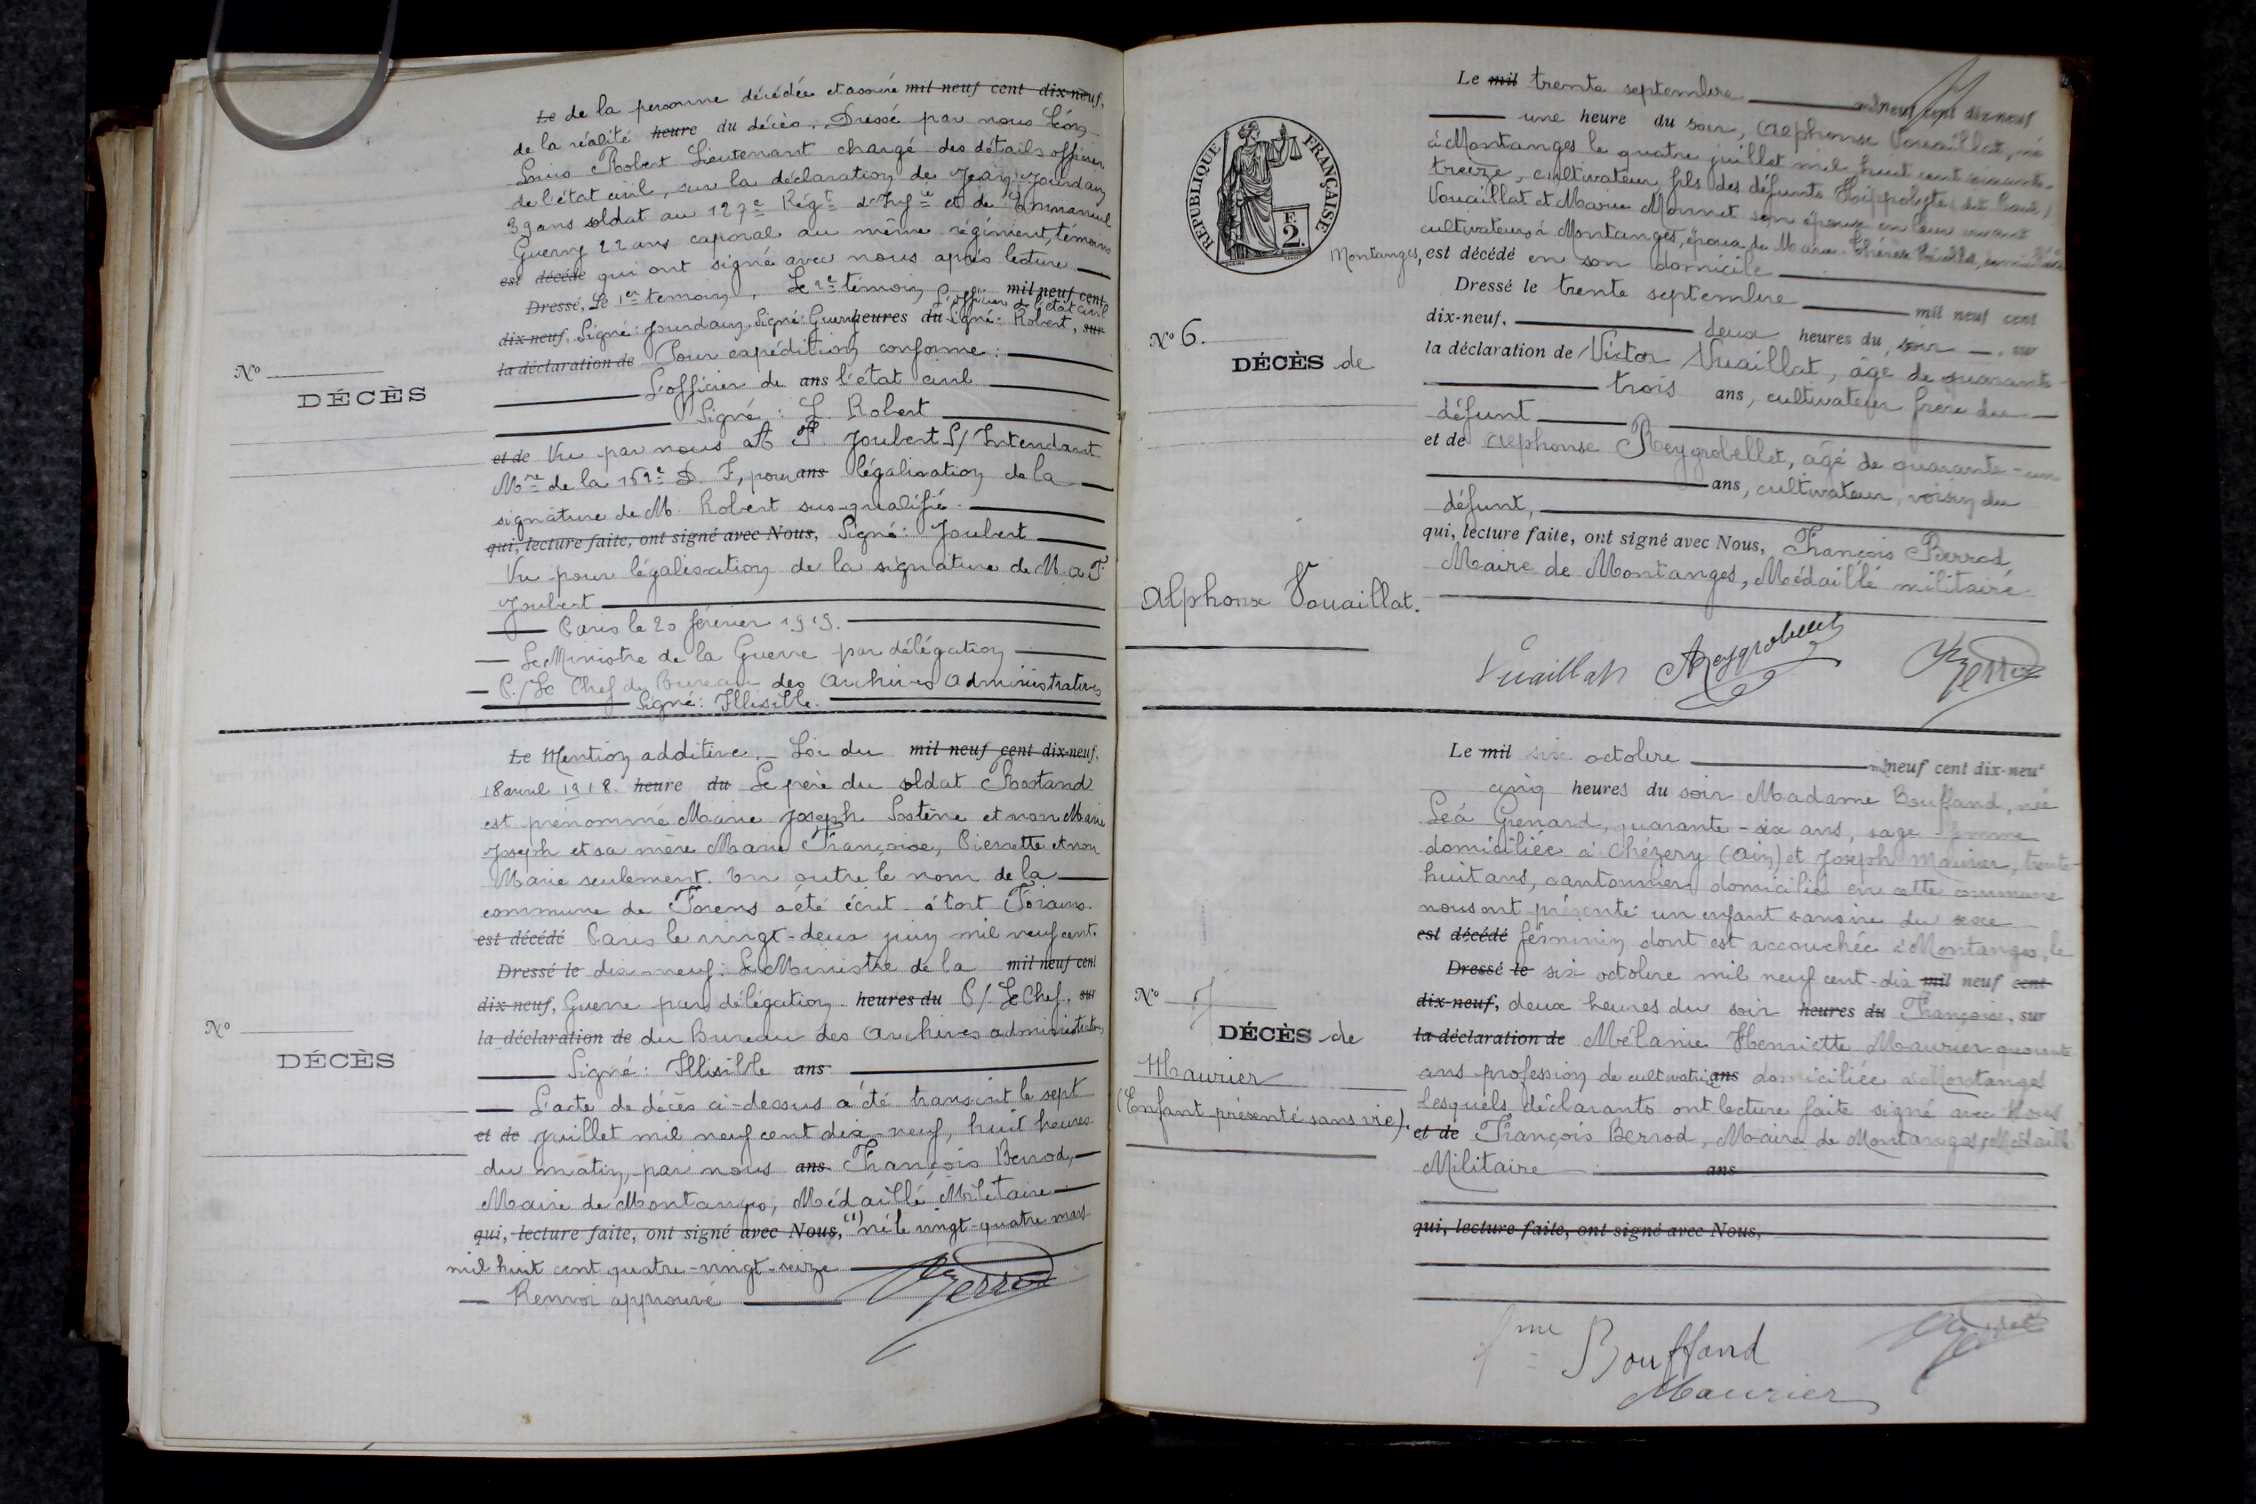 Le de la personne décédée et assuré mil neuf cent dix-neuf,
de la réalité heure du décès. Dressé par nous Léon
Louis Robert Lieutenant chargé des détails officier
de l'état civil, sur la déclaration de Jean Jourdain
39 ans soldat au 127e Régt d'Infie et de Emmanuel
Guerny 22 ans caporal au même régiment, témoins
est décédé qui ont signé avec nous après lecture
Dressé, Le 1er témoin, Le 2e témoin L'officier de l'état civil mil neuf cent
dix-neuf, Signé: Jourdain, Signé: Guerny heures du Signé: Robert, sur
la déclaration de Pour expédition conforme:
L'officier de ans l'état civil
Signé: L. Robert
et de Vu par nous A P. Joubert S/Intendant
Mre de la 162e D. I, pour ans légalisation de la
signature de M. Robert sus-qualifié.
qui, lecture faite, ont signé avec Nous, Signé: Joubert
Vu pour légalisation de la signature de M. A P.
Joubert
Paris le 20 février 1919.
Le Ministre de la Guerre par délégation
P./Le Chef du Bureau des Archives administratives
Signé: Illisible.
No
DÉCÈS
Le Mention additive. Loi du mil neuf cent dix-neuf,
18 avril 1918. heure du Le père du soldat Rostand
est prénommé Marie Joseph Sostène et non Marie
Joseph et sa mère Marie Françoise, Pierrette et non
Marie seulement. En outre le nom de la
commune de Forens a été écrit à tort Forans.
est décédé Paris le vingt-deux juin mil neuf cent
Dressé le dix-neuf: Le Ministre de la mil neuf cent
dix-neuf, Guerre par délégation heures du P/. Le Chef, sur
la déclaration de du Bureau des Archives administratives
Signé: Illisible ans
L'acte de décès ci-dessus a été transcrit le sept
et de juillet mil neuf cent dix-neuf, huit heures
du matin, par nous ans François Berrod,
Maire de Montanges, Médaillé Militaire
qui, lecture faite, ont signé avec Nous, (1) né le vingt-quatre mars
mil huit cent quatre-vingt-seize
Renvoi approuvé
Berrod
No
DÉCÈS
RÉPUBLIQUE FRANÇAISE
F.
2.
Le mil trente septembre mil neuf cent dix-neuf
une heure du soir, Alphonse Vouaillat, né
à Montanges le quatre juillet mil huit cent soixante-
treize, cultivateur, fils des défunts Hippolyte
Vouaillat et Marie Monnet son épouse en leur vivant
cultivateurs à Montanges, époux de Marie Thérèse
Montanges, est décédé en son domicile
Dressé le trente septembre mil neuf cent
dix-neuf, deux heures du soir, sur
la déclaration de Victor Vuaillat, âgé de quarante-
trois ans, cultivateur frère du
défunt
et de Alphonse Reygrobellet, âgé de quarante-un
ans, cultivateur, voisin du
défunt,
qui, lecture faite, ont signé avec Nous, François Berrod,
Maire de Montanges, Médaillé militaire
Vuaillat AReygrobellet Berrod
No 6.
DÉCÈS de
Alphonse Vouaillat.
Le mil six octobre mil neuf cent dix-neuf
cinq heures du soir Madame Bouffand, née
Léa Grenard, quarante-six ans, sage-femme
domiciliée à Chézery (Ain) et Joseph Maurier, trente-
huit ans, cantonnier domicilié en cette commune
nous ont présenté un enfant sans vie du sexe
est décédé féminin dont est accouchée à Montanges, le
Dressé le six octobre mil neuf cent-dix mil neuf cent
dix-neuf, deux heures du soir heures du Françoise, sur
la déclaration de Mélanie Henriette Maurier quarante
ans profession de cultivatrice ans domiciliée à Montanges
lesquels déclarants ont lecture faite signé avec Nous
et de François Berrod, Maire de Montanges, Médaillé
Militaire ans
qui, lecture faite, ont signé avec Nous,
Mme Bouffand
Maurier
No 7
DÉCÈS de
Maurier
(Enfant présenté sans vie).